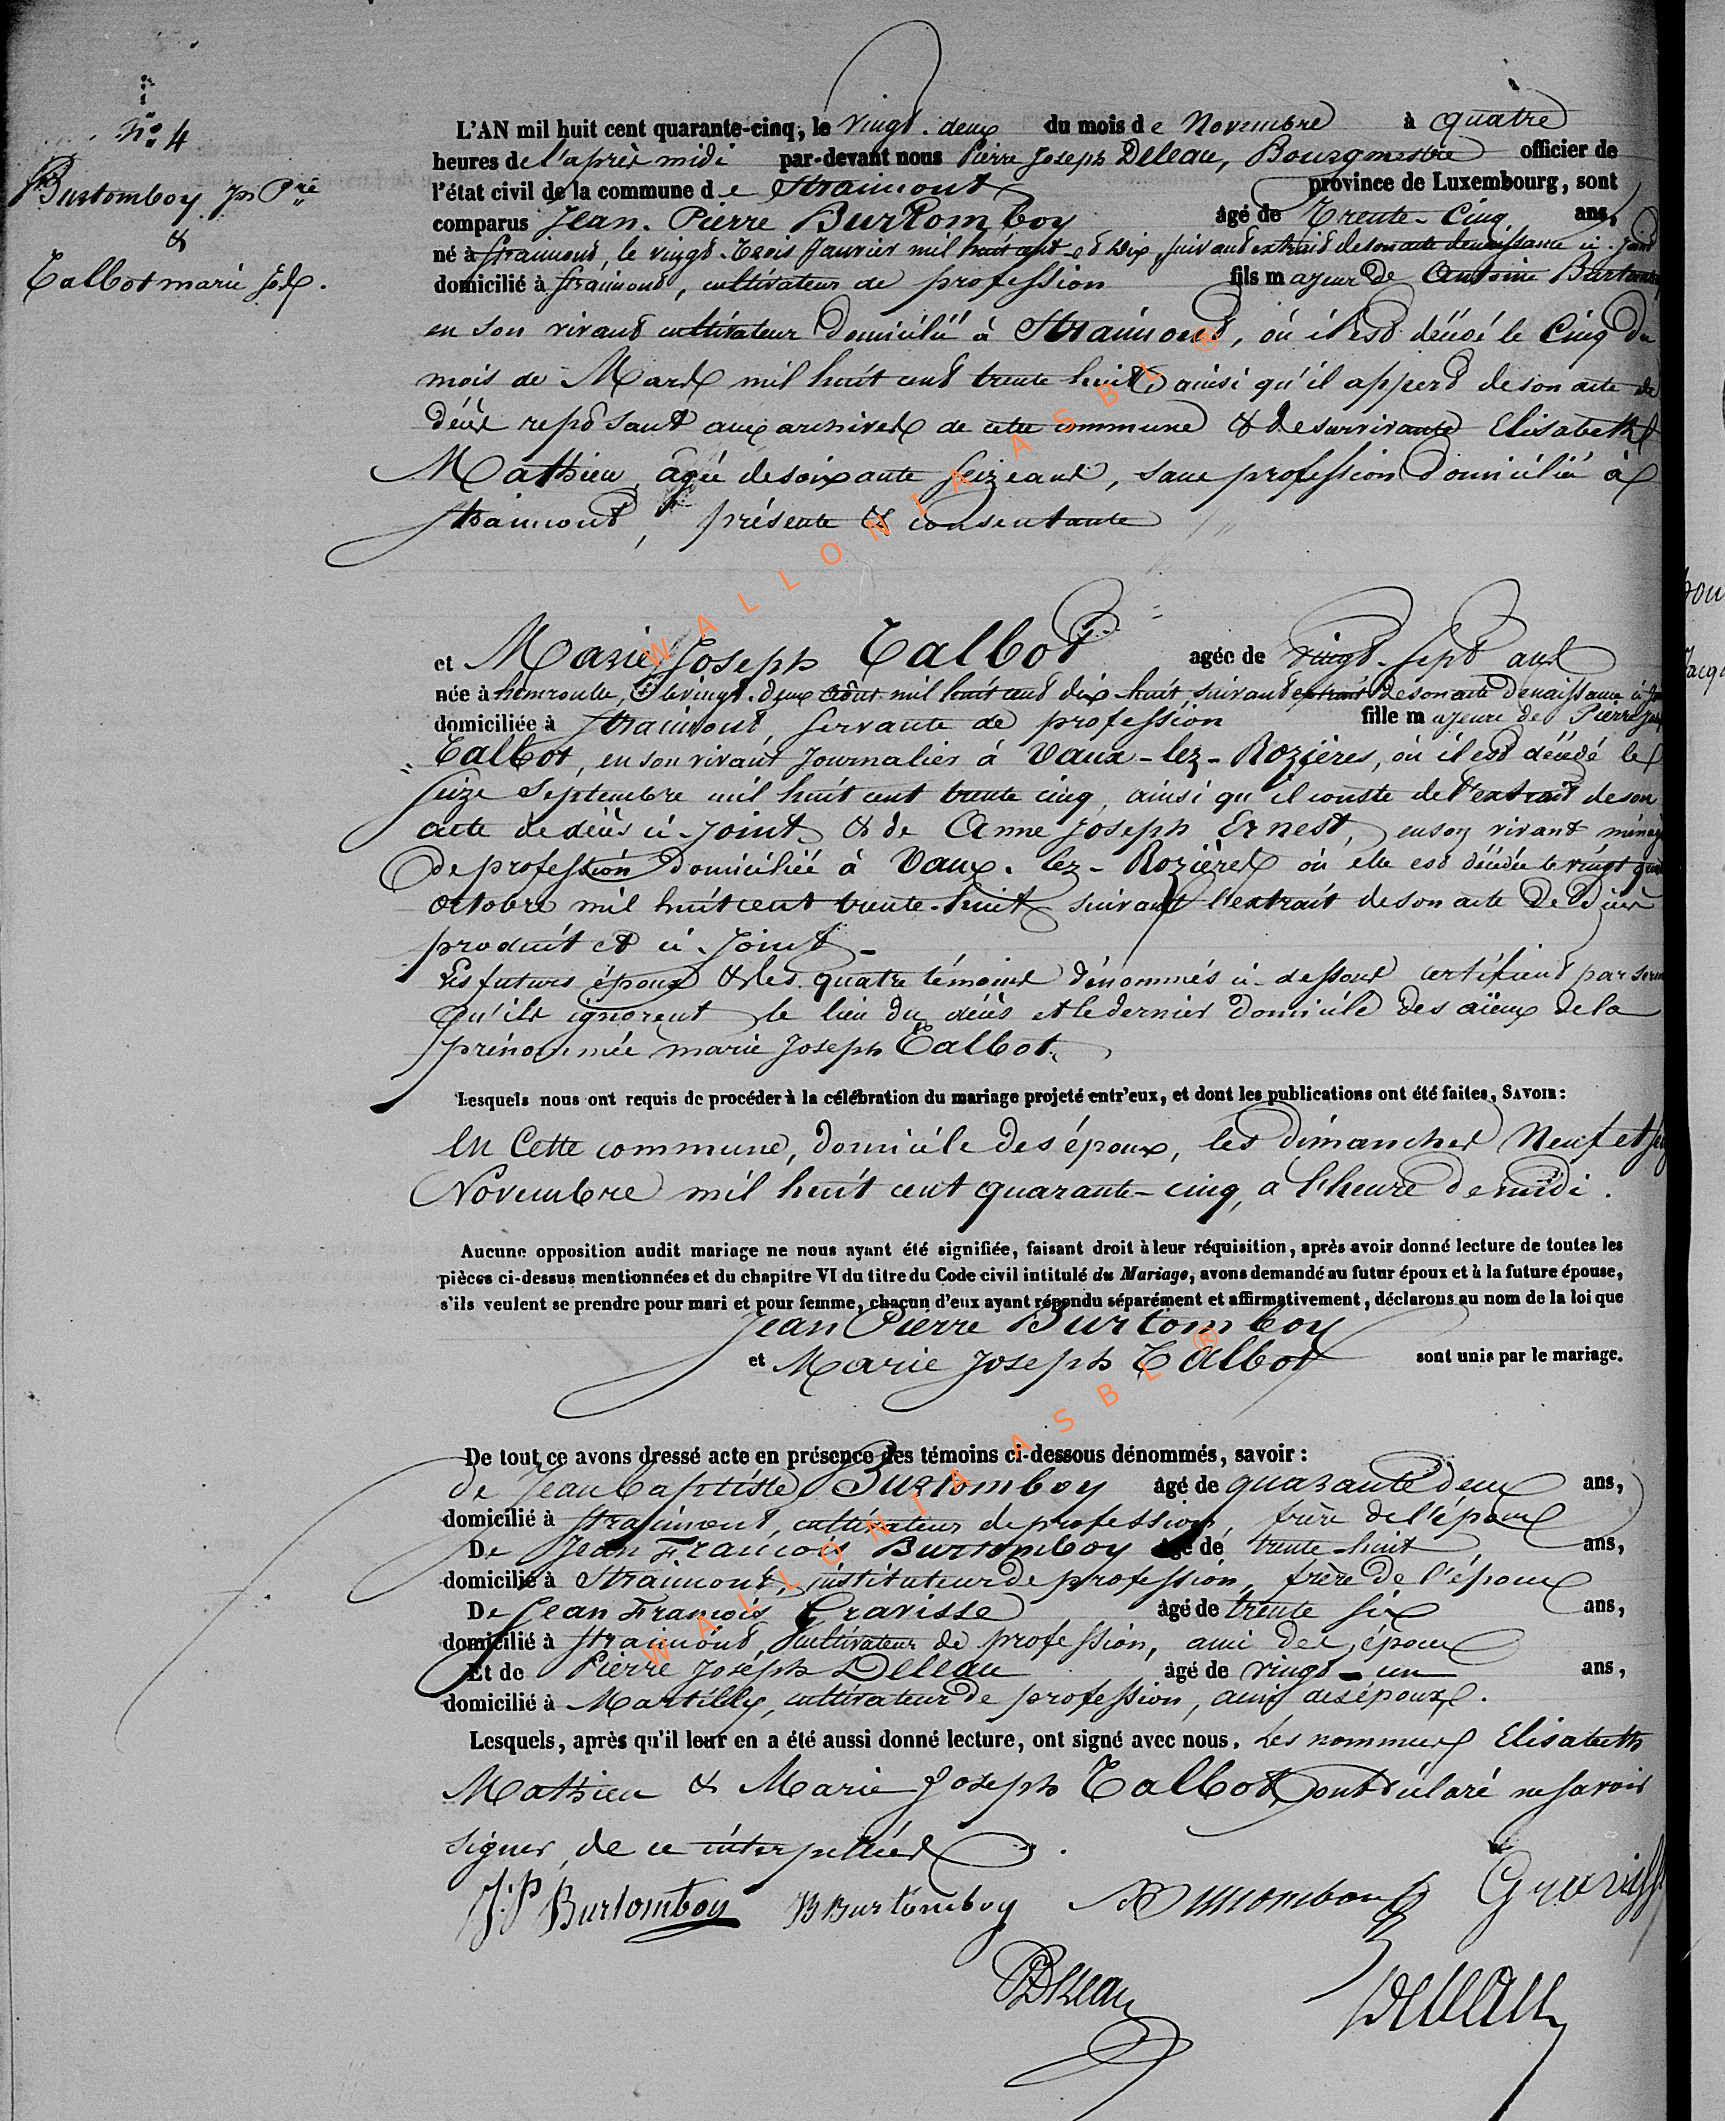 N° 4
Burtomboy Jn Pre
&
Talbot marie Jph.
L'AN mil huit cent quarante-cinq, le vingt-deux du mois de Novembre à quatre
heures de l'après midi par-devant nous Pierre Joseph Deleau, Bourgmestre officier de
l'état civil de la commune de Straimont province de Luxembourg, sont
comparus Jean-Pierre Burtomboy âgé de Trente-Cinq ans,
né à Straimont, le vingt-trois Janvier mil huit cent et dix, suivant extrait de son acte de naissance ci-joint
domicilié à Straimont, cultivateur de profession fils majeur de Antoine
en son vivant cultivateur domicilié à Straimont, où il est décédé le Cinq du
mois de Mars mil huit cent trente huit ainsi qu'il appert de son acte de
décès reposant aux archives de cette commune & de survivante Elisabeth
Mathieu, âgée de soixante seize ans, sans profession domiciliée à
Straimont, présente & consentante
et Marie Joseph Talbot agée de vingt-sept ans
née à hemroulle, le vingt-deux Août mil huit cent dix-huit, suivant extrait de son acte de naissance
domiciliée à Straimont, servante de profession fille majeure de Pierre
Talbot, en son vivant Journalier à Vaux-lez-Rozières, où il est décédé le
seize Septembre mil huit cent trente cinq, ainsi qu'il conste de l'extrait de son
acte de décès ci-joint & de Anne Joseph Ernest, en son vivant
de profession domiciliée à Vaux-lez-Rozières où elle est décédée le vingt
octobre mil huit cent trente-huit suivant l'extrait de son acte de décès
produit et ci-joint
Les futurs époux & les quatre témoins dénommés ci-dessous certifient par
qu'ils ignorent le lieu du décès et le dernier domicile des aïeux de la
prénommée marie Joseph Talbot.
Lesquels nous ont requis de procéder à la célébration du mariage projeté entr'eux, et dont les publications ont été faites, SAVOIR:
En Cette commune, domicile des époux, les dimanches Neuf et
Novembre mil huit cent quarante-cinq, à l'heure de midi.
Aucune opposition audit mariage ne nous ayant été signifiée, faisant droit à leur réquisition, après avoir donné lecture de toutes les
pièces ci-dessus mentionnées et du chapitre VI du titre du Code civil intitulé du Mariage, avons demandé au futur époux et à la future épouse,
s'ils veulent se prendre pour mari et pour femme, chacun d'eux ayant répondu séparément et affirmativement, déclarons au nom de la loi que
Jean Pierre Burtomboy
et Marie Joseph Talbot sont unis par le mariage.
De tout ce avons dressé acte en présence des témoins ci-dessous dénommés, savoir:
de Jean Baptiste Burtomboy âgé de quarante deux ans,
domicilié à Straimont, cultivateur de profession, frère de l'époux
De Jean François Burtomboy âgé de trente-huit ans,
domicilié à Straimont, instituteur de profession, frère de l'époux
De Jean François Gravisse âgé de trente six ans,
domicilié à Straimont, cultivateur de profession, ami des époux
Et de Pierre Joseph Deleau âgé de vingt-un ans,
domicilié à Martilly, cultivateur de profession, ami des époux.
Lesquels, après qu'il leur en a été aussi donné lecture, ont signé avec nous. Les nommées Elisabeth
Mathieu & Marie Joseph Talbot ont déclaré ne savoir
signer, de ce interpellées.
J.P Burtomboy JB Burtomboy Burtomboy Graviss
PDeleau Deleau
WALLONIA ASBL ®
WALLONIA ASBL ®